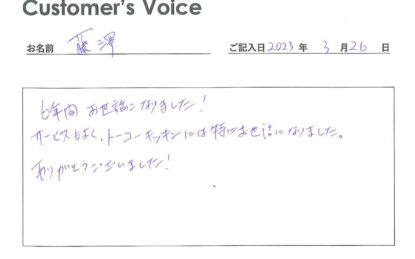 Customer's Voice
お名前 藤澤 ご記入日 2023 年 3 月 26 日
6年間 お世話になりました!
サービスもよく、トーコーキッチンには特にお世話になりました。
ありがとうございました!